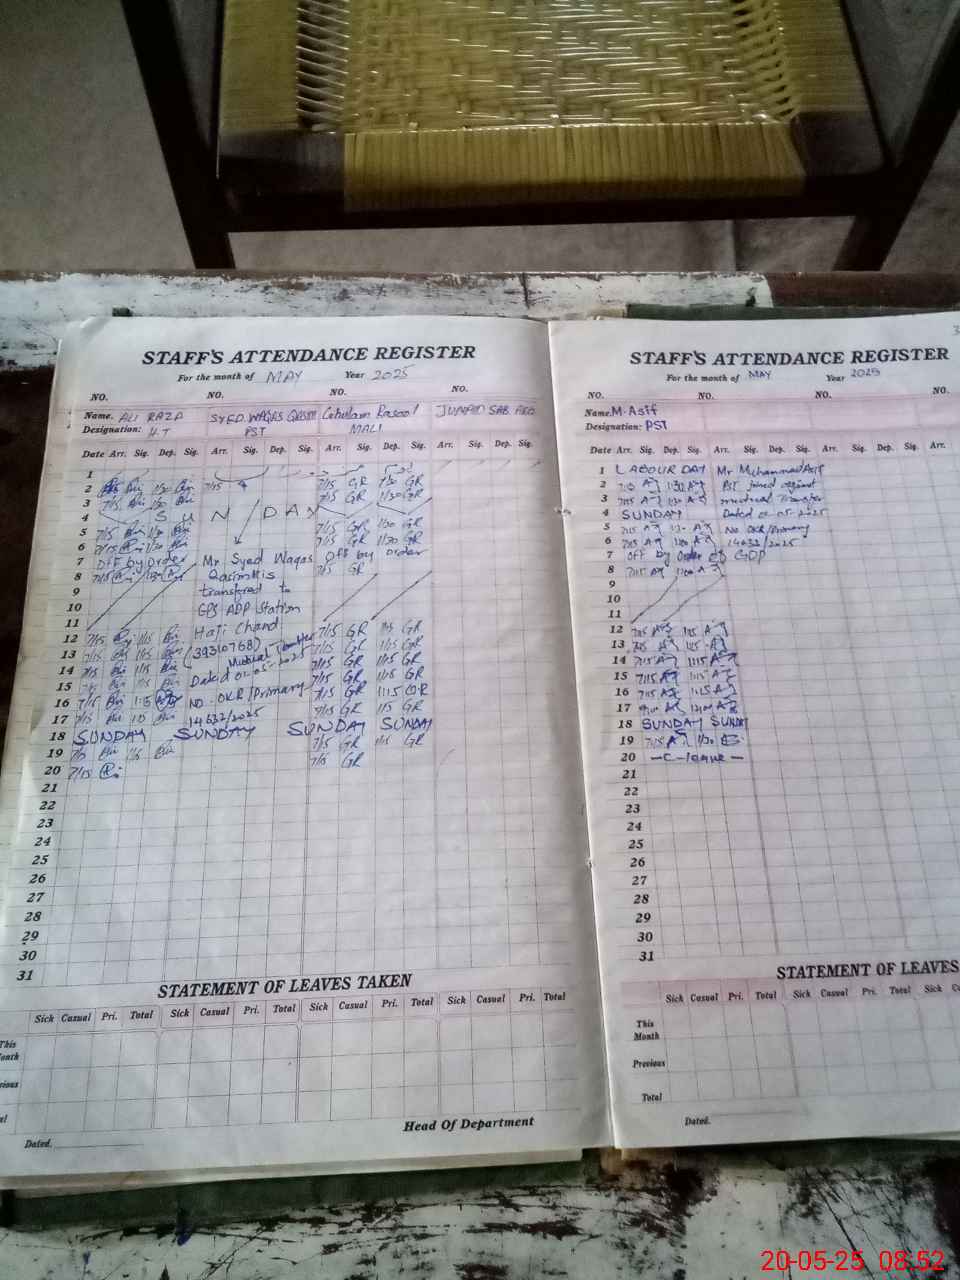 STAFF'S ATTENDANCE REGISTER
For the month of MAY Year 2025
NO. NO. NO. NO.
Name. ALI RAZA SYED WAQAS QASIM Ghulam Rasool
Designation: H.T PST MALI
Date Arr. Sig. Dep. Sig. Arr. Sig. Dep. Sig. Arr. Sig. Dep. Sig. Arr. Sig. Dep. Sig.
1
2 1/30 7/15 7/15 GR 1/30 GR
3 7/15 1/30 7/15 GR 1/30 GR
4 S U N / D A Y
5 7/15 1/30 7/15 GR 1/30 GR
6 7/15 1/30 7/15 GR 1/30 GR
7 OFF by order Mr. Syed Waqas Off by order
8 7/15 7/15 GR
transferred to
9
GPS ADP Station
10
Haji Chand
11
(39310768)
12 7/15 1/15 7/15 GR 1/15 GR
13 7/15 1/15 7/15 GR 1/15 GR
Dated 01-05-2025
14 7/15 1/15 7/15 GR 1/15 GR
15 7/15 1/15 7/15 GR 1/15 GR
NO. OKR/Primary
16 7/15 1:15 7/15 GR 1:15 GR
14632/2025
17 7/15 7/15 GR 1/15 GR
18 SUNDAY SUNDAY SUNDAY SUNDAY
19 7/15 7/15 GR 1/15 GR
20 7/15 7/15 GR
21
22
23
24
25
26
27
28
29
30
31
STATEMENT OF LEAVES TAKEN
Sick Casual Pri. Total Sick Casual Pri. Total Sick Casual Pri. Total Sick Casual Pri. Total
Head Of Department
Dated.
STAFF'S ATTENDANCE REGISTER
For the month of MAY Year 2025
NO. NO. NO. NO.
Name. M. Asif
Designation: PST
Date Arr. Sig. Dep. Sig. Arr. Sig. Dep. Sig. Arr. Sig. Dep. Sig. Arr.
1 LABOUR DAY Mr Muhammad Asif
2 PST joined against
3 7/15 mutual Transfer
4 SUNDAY Dated 01-05-2025
5 7/15 No OKR/Primary
6 7/15 14632/2025
7 OFF by Order of GOP
8 7/15
9
10
11
12 7/15 1/15
13 7/15 1/15
14 7/15 1/15
15 7/15 1/15
16 7/15 1:15
17
18 SUNDAY SUNDAY
19 7/15 1/30
20 - C-leave -
21
22
23
24
25
26
27
28
29
30
31
STATEMENT OF LEAVES
Sick Casual Pri. Total Sick Casual Pri. Total Sick
This
Month
Previous
Total
Dated.
20-05-25 08:52